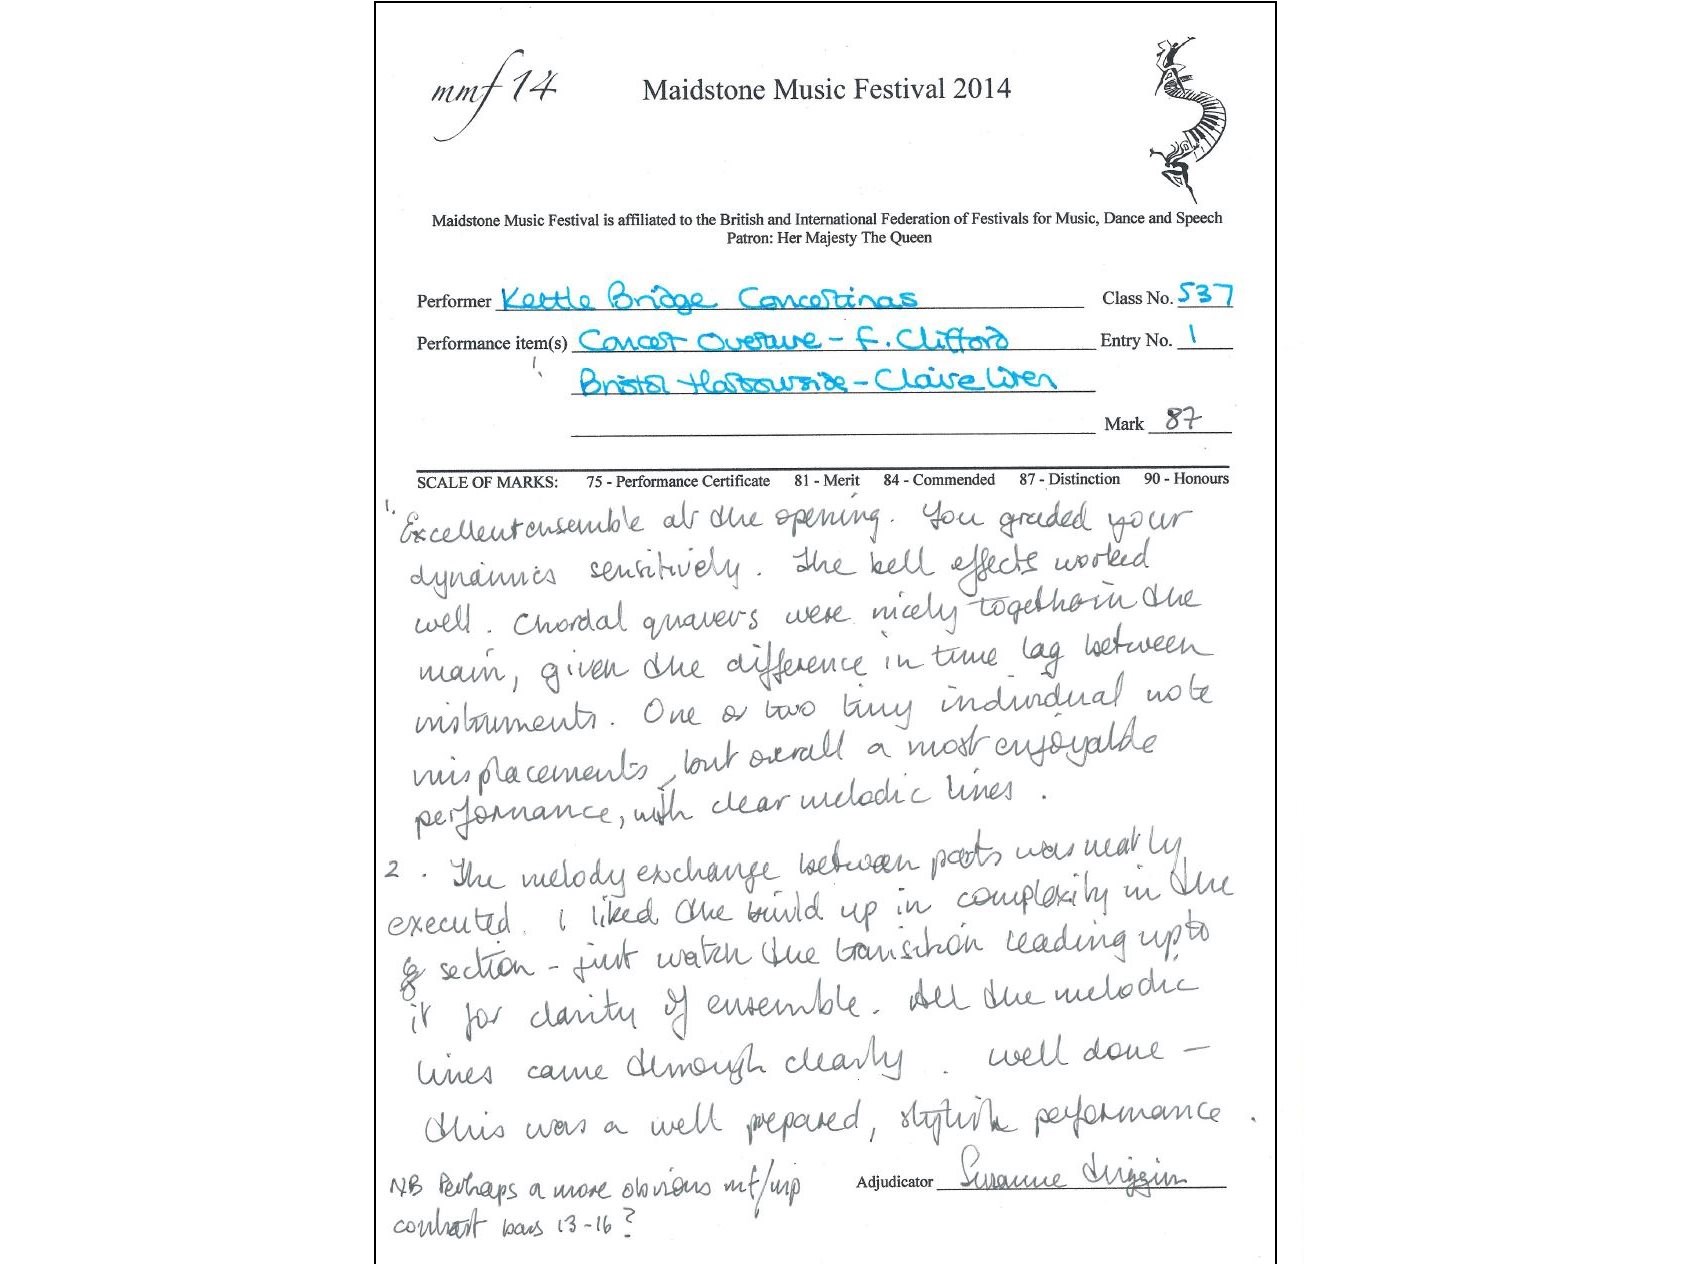 mmf 14
Maidstone Music Festival 2014
Maidstone Music Festival is affiliated to the British and International Federation of Festivals for Music, Dance and Speech
Patron: Her Majesty The Queen
Performer Kettle Bridge Concertinas Class No. 537
Performance item(s) Concert Overture - F. Clifford Entry No. 1
Bristol Harbourside - Claire Wren
Mark 87
SCALE OF MARKS: 75 - Performance Certificate 81 - Merit 84 - Commended 87 - Distinction 90 - Honours
1. Excellent ensemble at the opening. You graded your
dynamics sensitively. The bell effects worked
well. Chordal quavers were nicely together in the
main, given the difference in time lag between
instruments. One or two tiny individual note
misplacements, but overall a most enjoyable
performance, with clear melodic lines.
2. The melody exchange between parts was neatly
executed. I liked the build up in complexity in the
section - just watch the transition leading up to
it for clarity of ensemble. All the melodic
lines came through clearly. Well done -
this was a well prepared, stylish performance.
NB Perhaps a more obvious mf/mp
contrast bars 13-16?
Adjudicator Susanne